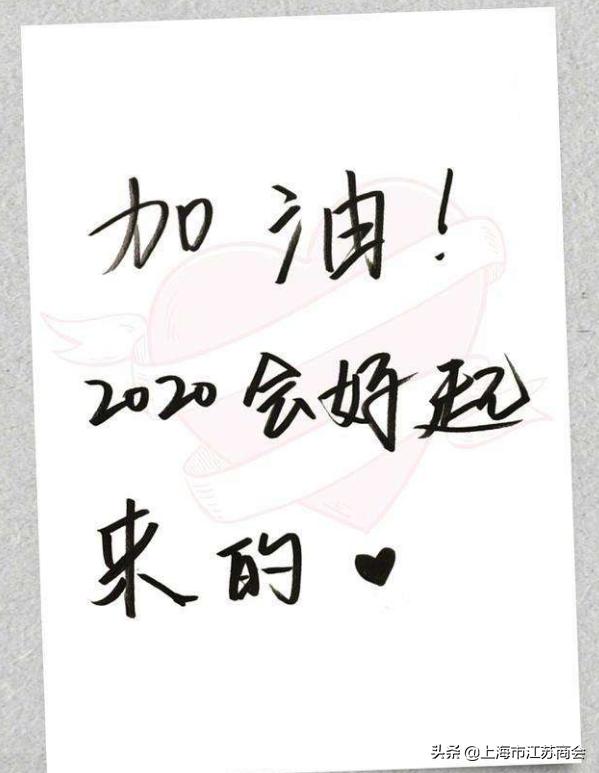 加油!
2020会好起
来的♥
头条 @上海市江苏商会